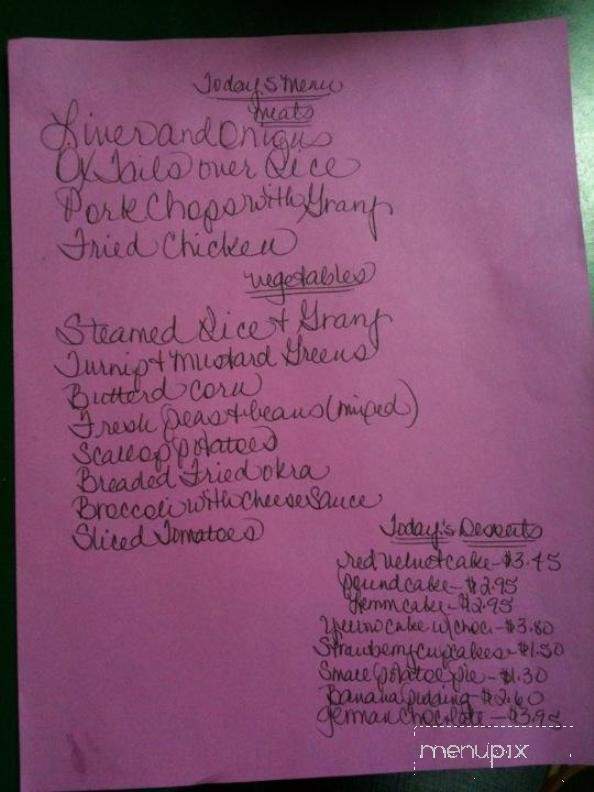 Today's Menu
meats
Liver and Onions
Ox Tails over Rice
Pork Chops with Gravy
Fried Chicken
vegetables
Steamed Rice + Gravy
Turnip + Mustard Greens
Butterd corn
Fresh peas + beans (mixed)
Scallop potatoes
Breaded Fried okra
Broccoli with Cheese Sauce
Sliced Tomatoes
Today's Desserts
red velvet cake - $3.45
pound cake - $2.95
cake - $2.95
Yellow Cake w/choc. - $3.80
Strawberry cupcakes - $1.50
Small potatoe pie - $1.30
Banana pudding - $2.60
German Chocolate - $3.95
menupix